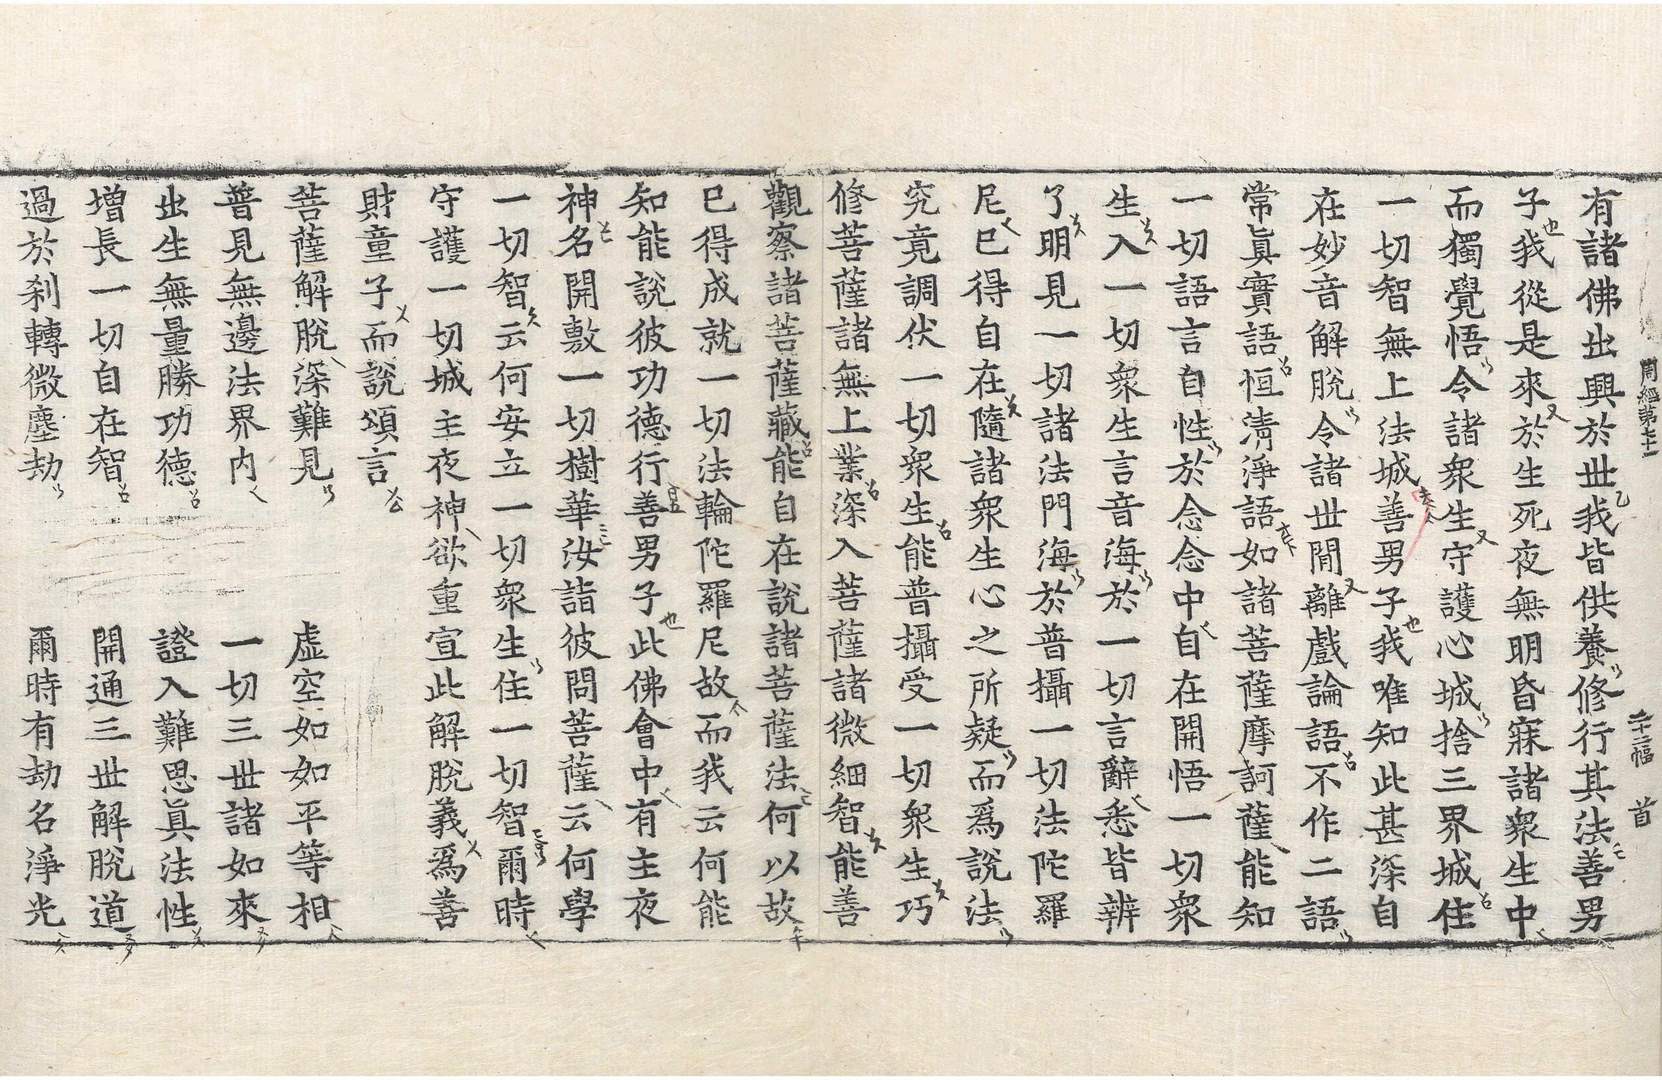 周經第七十二
二十二幅 首
有諸佛出興於丗我皆供養修行其法善男
子我從是來於生死夜無明昏寐諸衆生中
而獨覺悟令諸衆生守護心城捨三界城住
一切智無上法城善男子我唯知此甚深自
在妙音解脫令諸丗間離戲論語不作二語
常眞實語恒清淨語如諸菩薩摩訶薩能知
一切語言自性於念念中自在開悟一切衆
生入一切衆生言音海於一切言辭悉皆辨
了明見一切諸法門海於普攝一切法陀羅
尼已得自在隨諸衆生心之所疑而爲說法
究竟調伏一切衆生能普攝受一切衆生巧
修菩薩諸無上業深入菩薩諸微細智能善
觀察諸菩薩藏能自在說諸菩薩法何以故
已得成就一切法輪陀羅尼故而我云何能
知能說彼功德行善男子此佛會中有主夜
神名開敷一切樹華汝詣彼問菩薩云何學
一切智云何安立一切衆生住一切智爾時
守護一切城主夜神欲重宣此解脫義爲善
財童子而說頌言
菩薩解脫深難見 虛空如如平等相
普見無邊法界內 一切三丗諸如來
出生無量勝功德 證入難思眞法性
增長一切自在智 開通三丗解脫道
過於刹轉微塵劫 爾時有劫名淨光